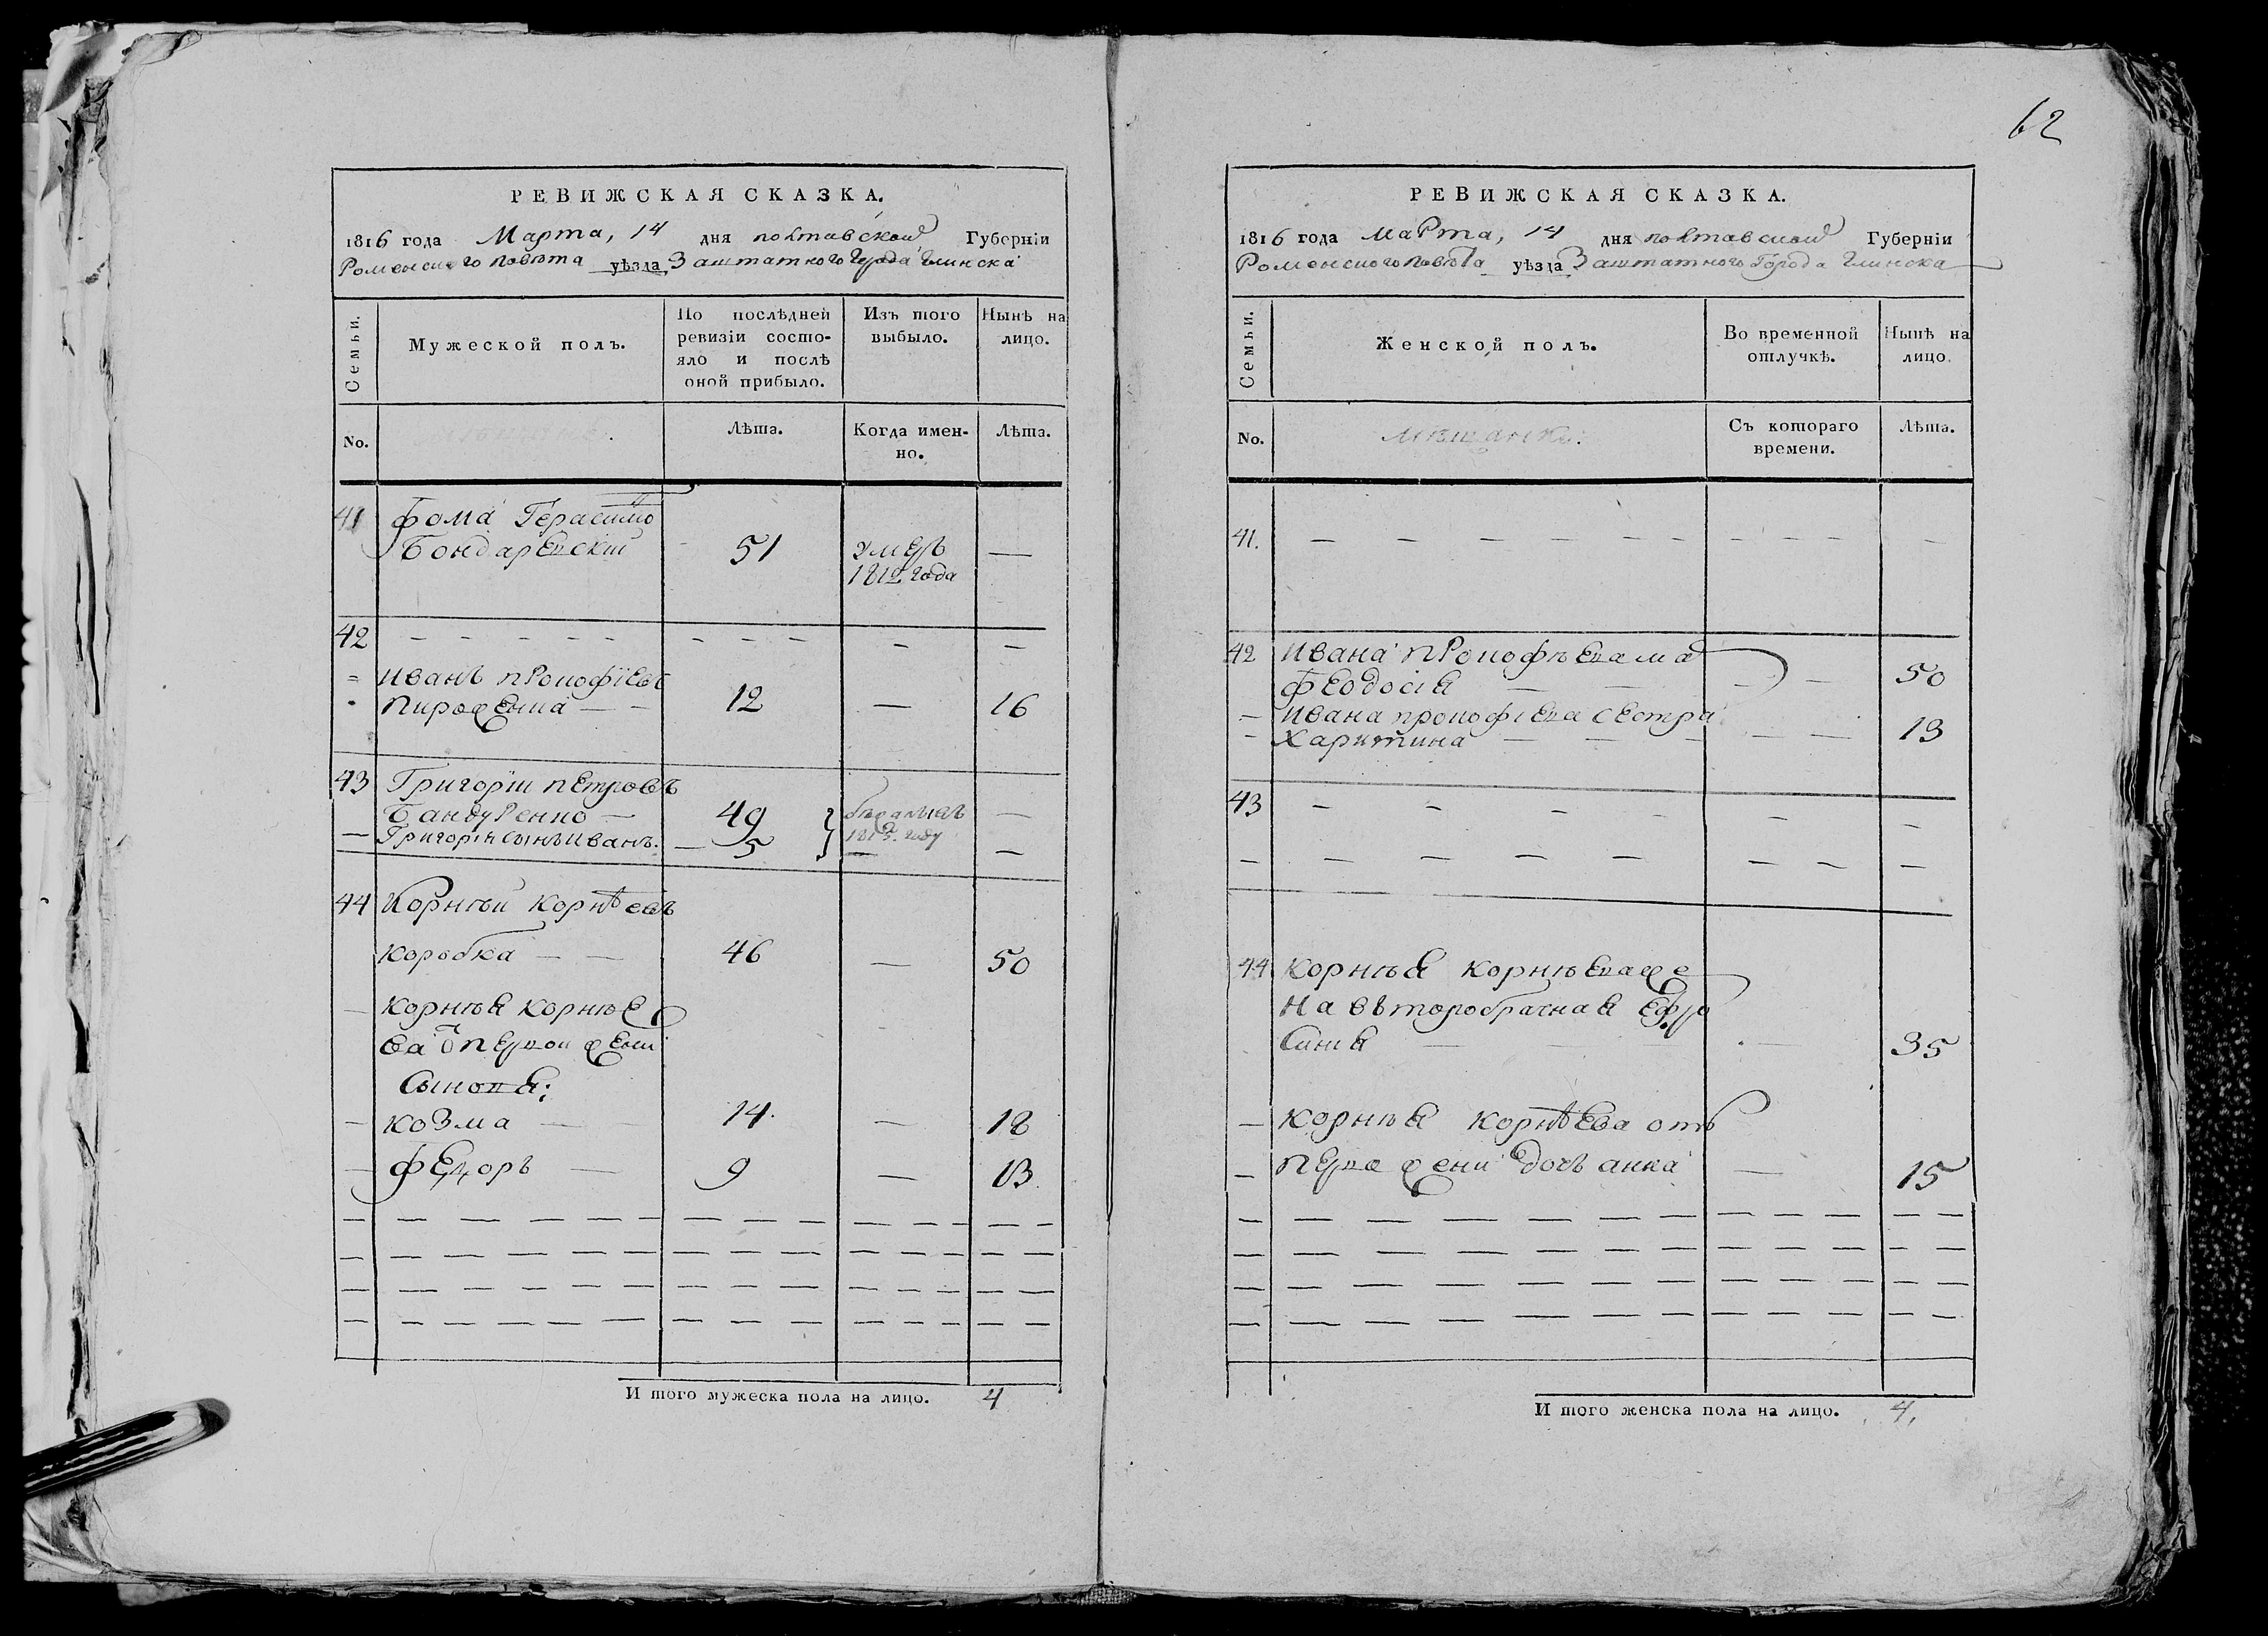 62
РЕВИЖСКАЯ СКАЗКА.
1816 года Марта, 14 дня полтавской Губерніи
Роменского повѣта уѣзда Заштатного Города Глинска
Семьи.
Мужеской полъ.
По послѣдней ревизіи состояло и послѣ оной прибыло.
Изъ того выбыло.
Нынѣ на лицо.
No.
Лѣта.
Когда именно.
Лѣта.
41 Фома Герасимо
Бондаревскій 51 умеръ —
1812 года
42 — — — — — — — — — —
= иванъ прокофіевъ
12 — 16
43 Григорій петровъ
Бандуренко — 49 —
— Григорія сынъ иванъ. — 5 1815. году —
44 Корнѣй корнѣевъ
коробка — — 46 — 50
— корнѣя корнѣе
ва от первой жени
сыновя:
— козма — — 14. — 18
— федоръ — 9 — 13.
И того мужеска пола на лицо. 4
РЕВИЖСКАЯ СКАЗКА.
1816 года Марта, 14 дня полтавской Губерніи
Роменского повѣта уѣзда Заштатного Города Глинска
Семьи.
Женской полъ.
Во временной отлучкѣ.
Нынѣ на лицо.
No.
мѣщански:
Съ котораго времени.
Лѣта.
41. — — — — — — — — — —
42 Ивана прокофѣева ма
феодосія — — — — 50
— Ивана прокофіева сестра
— Харитина — — — — — 13
43 — — — — — —
— — — — — — — —
44 корнѣя корнѣева же
на второбрачная Ефро
синия — — — — 35
— корнѣя корнѣева отъ
— перво жени дочъ анна — 15
И того женска пола на лицо. 4.